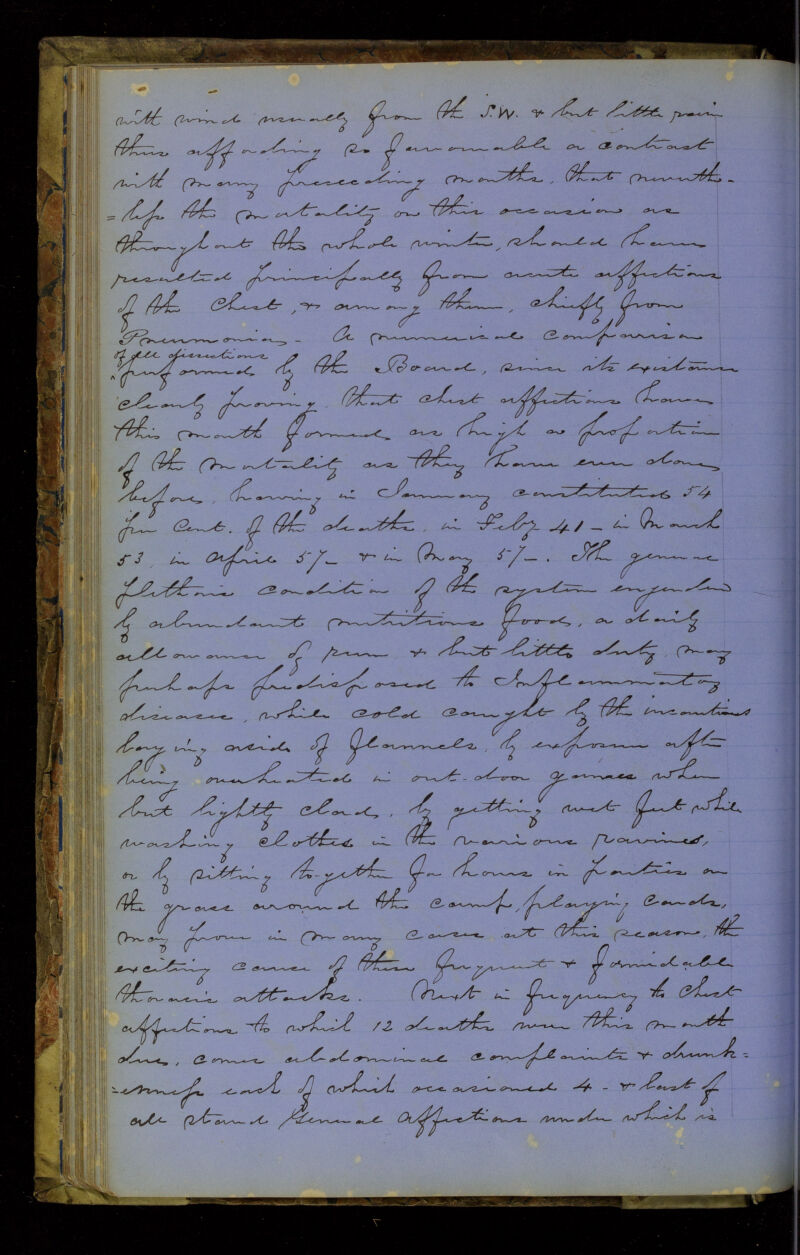 with wind usually from the S.W. & but little rain
thus affording so favourable a contrast
with many preceeding months, that neverthe-
=less the mortality on this occasion as
throughout the whole winter, should have
resulted principally from acute affections
of the Chest, & among them, chiefly from
Pneumonia - A numerical comparison
of all dissections
performed by the Board, since its existance
clearly proving that chest affections have
this month formed as high a proportion
of the mortality as they have ever done
before, having in January constituted 54
per Cent. of the deaths, in Feby 41 - in March
53, in April 57 - & in May 57 -. The general
plethoric condition of the system engendered
by abundant nutritious food, a daily
allowance of rum & but little duty, may
perhaps predisposed to Inflammatory
diseases, while cold caught by the incautious
laying aside of flannels, by exposure after
being overheated in out-door games when
but lightly clad, by getting wet feet while
washing clothes in the various ravines,
or by sitting together for hours in parties on
the grass around the camp, playing cards,
may prove in many cases at this season, the
exciting cause of these frequent & formidable
thoracic attacks. Next in frequency to Chest
affections to which 12 deaths were this month
due, comes abdominal complaints & drunk=
=enness each of which occasioned 4 - & last of
all stand General Affections under which is